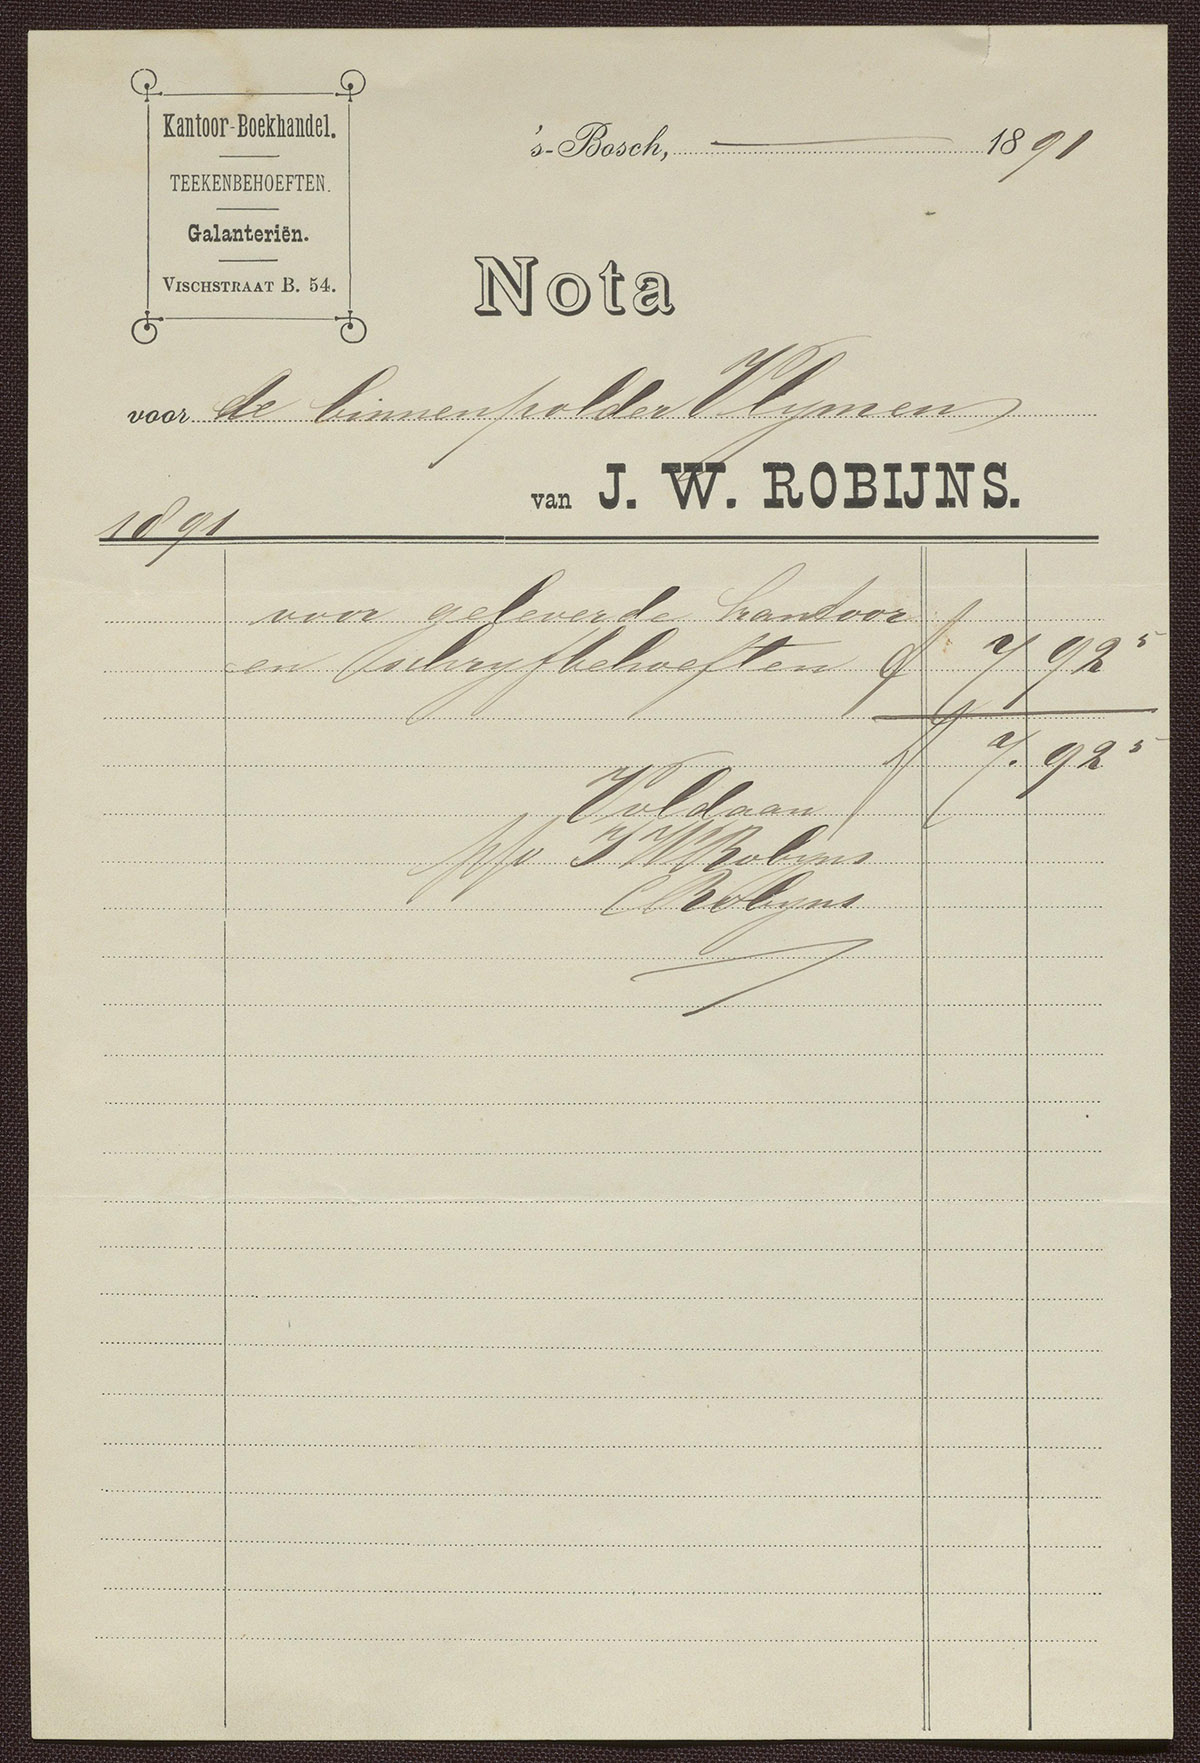 Kantoor-Boekhandel.
TEEKENBEHOEFTEN.
Galanteriën.
VISCHSTRAAT B. 54.
's-Bosch, 1891
Nota
voor de binnenpolder Vlymen
van J. W. ROBIJNS.
1891
voor geleverde kantoor
en schryfbehoeften f 7 92⁵
f 7. 92⁵
Voldaan
p/o J W Robyns
C Robyns